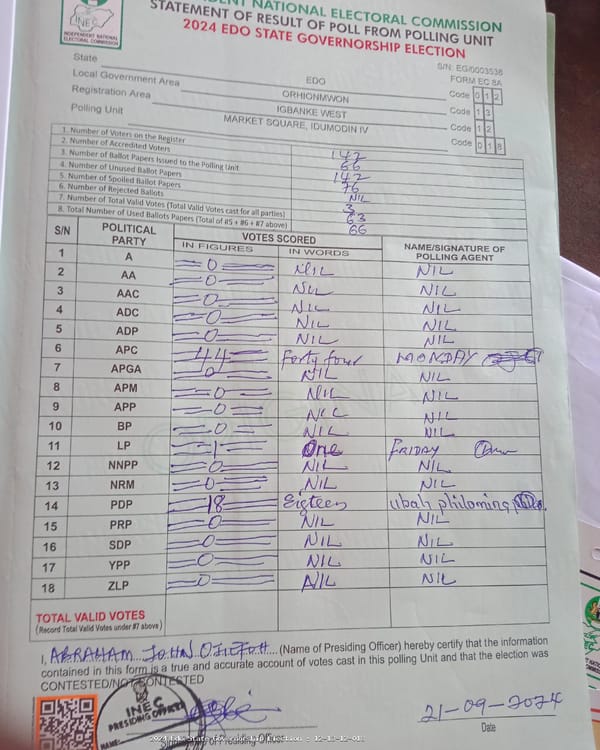 INDEPENDENT NATIONAL ELECTORAL COMMISSION
STATEMENT OF RESULT OF POLL FROM POLLING UNIT
2024 EDO STATE GOVERNORSHIP ELECTION
INEC
INDEPENDENT NATIONAL
ELECTORAL COMMISSION
S/N: EG/0003538
FORM EC 8A
State EDO Code 0 1 2
Local Government Area ORHIONMWON Code 1 3
Registration Area IGBANKE WEST Code 1 2
Polling Unit MARKET SQUARE, IDUMODIN IV Code 0 1 8
1. Number of Voters on the Register 142
2. Number of Accredited Voters 66
3. Number of Ballot Papers Issued to the Polling Unit 142
4. Number of Unused Ballot Papers 76
5. Number of Spoiled Ballot Papers NIL
6. Number of Rejected Ballots 3
7. Number of Total Valid Votes (Total Valid Votes cast for all parties) 63
8. Total Number of Used Ballots Papers (Total of #5 + #6 + #7 above) 66
S/N POLITICAL PARTY VOTES SCORED NAME/SIGNATURE OF POLLING AGENT
IN FIGURES IN WORDS
1 A 0 NIL NIL
2 AA 0 NIL NIL
3 AAC 0 NIL NIL
4 ADC 0 NIL NIL
5 ADP 0 NIL NIL
6 APC 44 Forty four MONDAY
7 APGA 0 NIL NIL
8 APM 0 NIL NIL
9 APP 0 NIL NIL
10 BP 0 NIL NIL
11 LP 1 One FRIDAY
12 NNPP 0 NIL NIL
13 NRM 0 NIL NIL
14 PDP 18 Eigteen Ubah philomina
15 PRP 0 NIL NIL
16 SDP 0 NIL NIL
17 YPP 0 NIL NIL
18 ZLP 0 NIL NIL
TOTAL VALID VOTES
(Record Total Valid Votes under #7 above)
I, ABRAHAM JOHN (Name of Presiding Officer) hereby certify that the information
contained in this form is a true and accurate account of votes cast in this polling Unit and that the election was
CONTESTED/NOT CONTESTED
INEC
PRESIDING OFFICER
NAME:
21-09-2024
Date